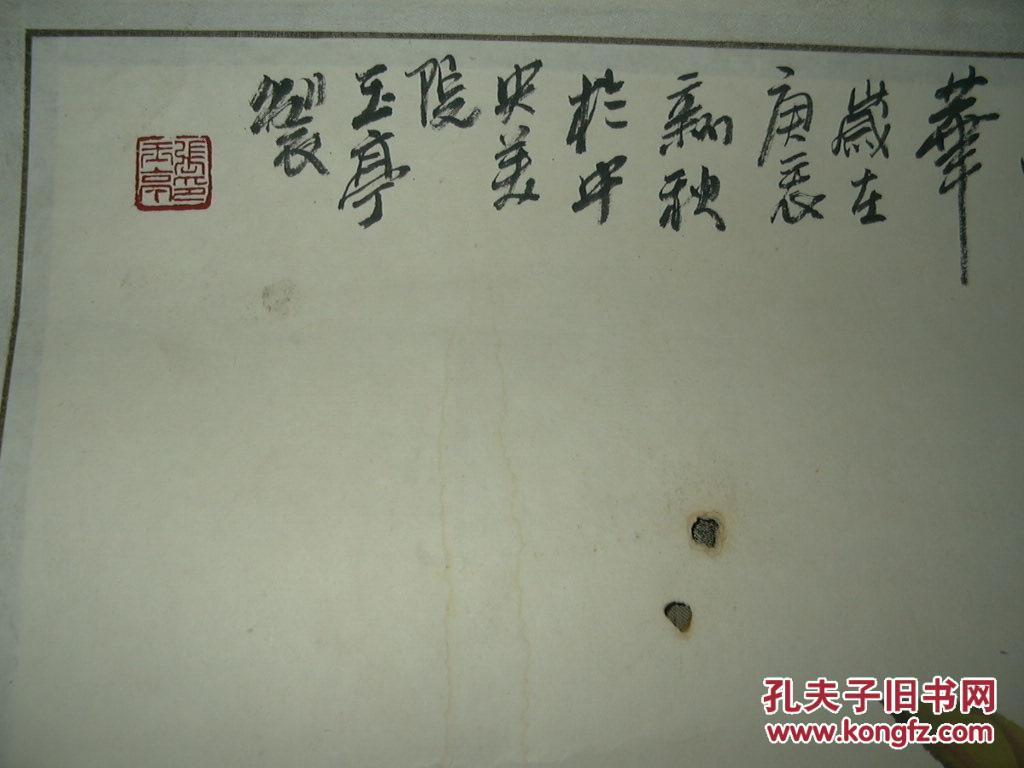 華
歲在
庚辰
新秋
於中
央美
院
玉亭
製
張印
玉亭
孔夫子旧书网
www.kongfz.com